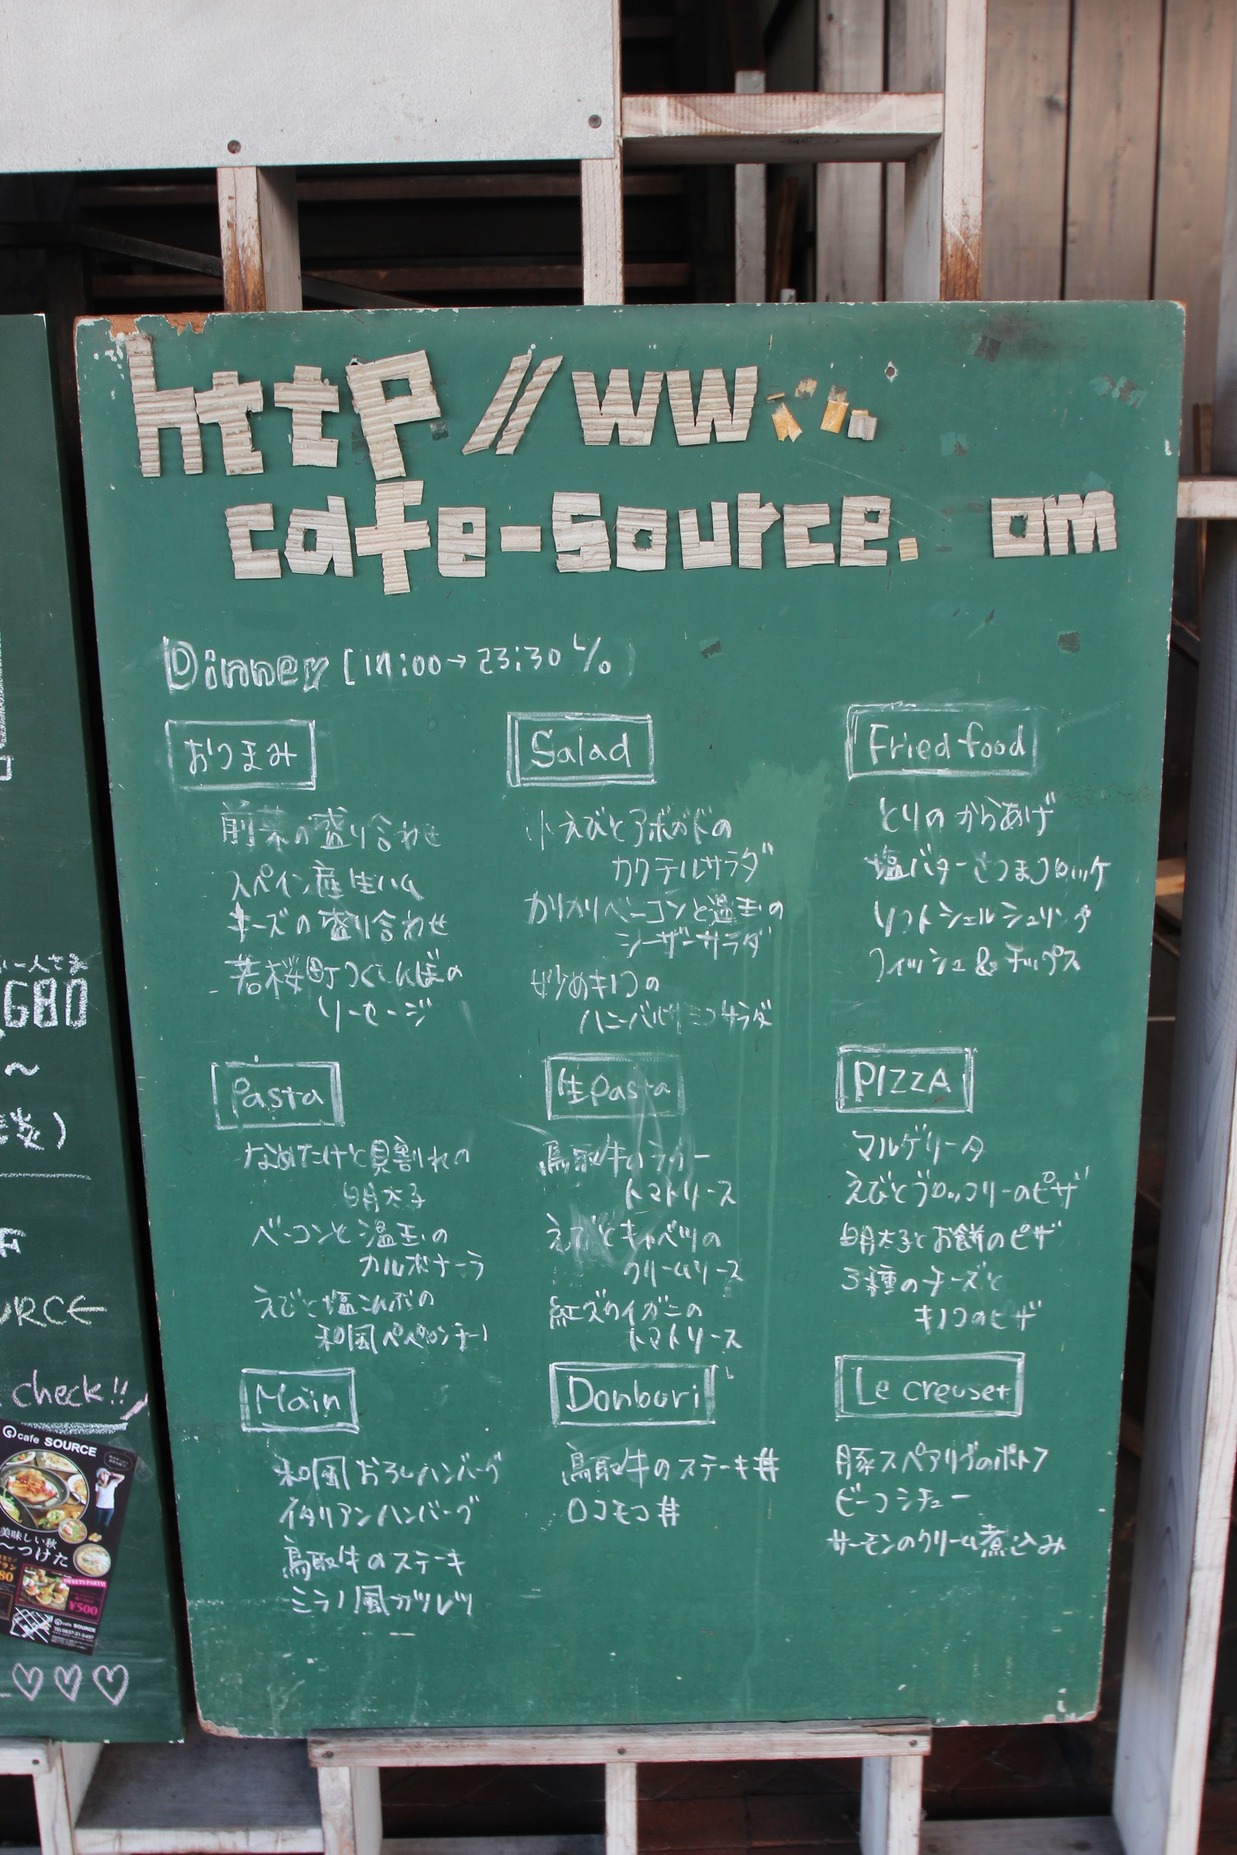 http //ww
cafe-source. om
Dinner
23:30 L/o
おつまみ
前菜の盛り合わせ
スペイン産生ハム
チーズの盛り合わせ
若桜町つくよんぼの
ソーセージ
Salad
小えびとアボガドの
カクテルサラダ
カリカリベーコンと温玉の
シーザーサラダ
炒めキノコの
サラダ
Fried food
とりのからあげ
塩バターさつまコロッケ
ソフトシェルシュリンプ
フィッシュ&チップス
Pasta
なめたけと貝割れの
明太子
ベーコンと温玉の
カルボナーラ
えびと塩こんぶの
和風ペペロンチーノ
生Pasta
鳥取牛の
トマトソース
えびとキャベツの
クリームソース
紅ズワイガニの
トマトソース
PIZZA
マルゲリータ
えびとブロッコリーのピザ
明太子とお餅のピザ
3種のチーズと
キノコのピザ
Main
和風おろしハンバーグ
イタリアンハンバーグ
鳥取牛のステーキ
ミラノ風カツレツ
Donburi
鳥取牛のステーキ丼
ロコモコ丼
Le creuset
豚スペアリブのポトフ
ビーフシチュー
サーモンのクリーム煮込み
680
～
URCE
check!!
cafe SOURCE
美味しい秋
つけた
SWEETS PARTY!
¥500
cafe SOURCE